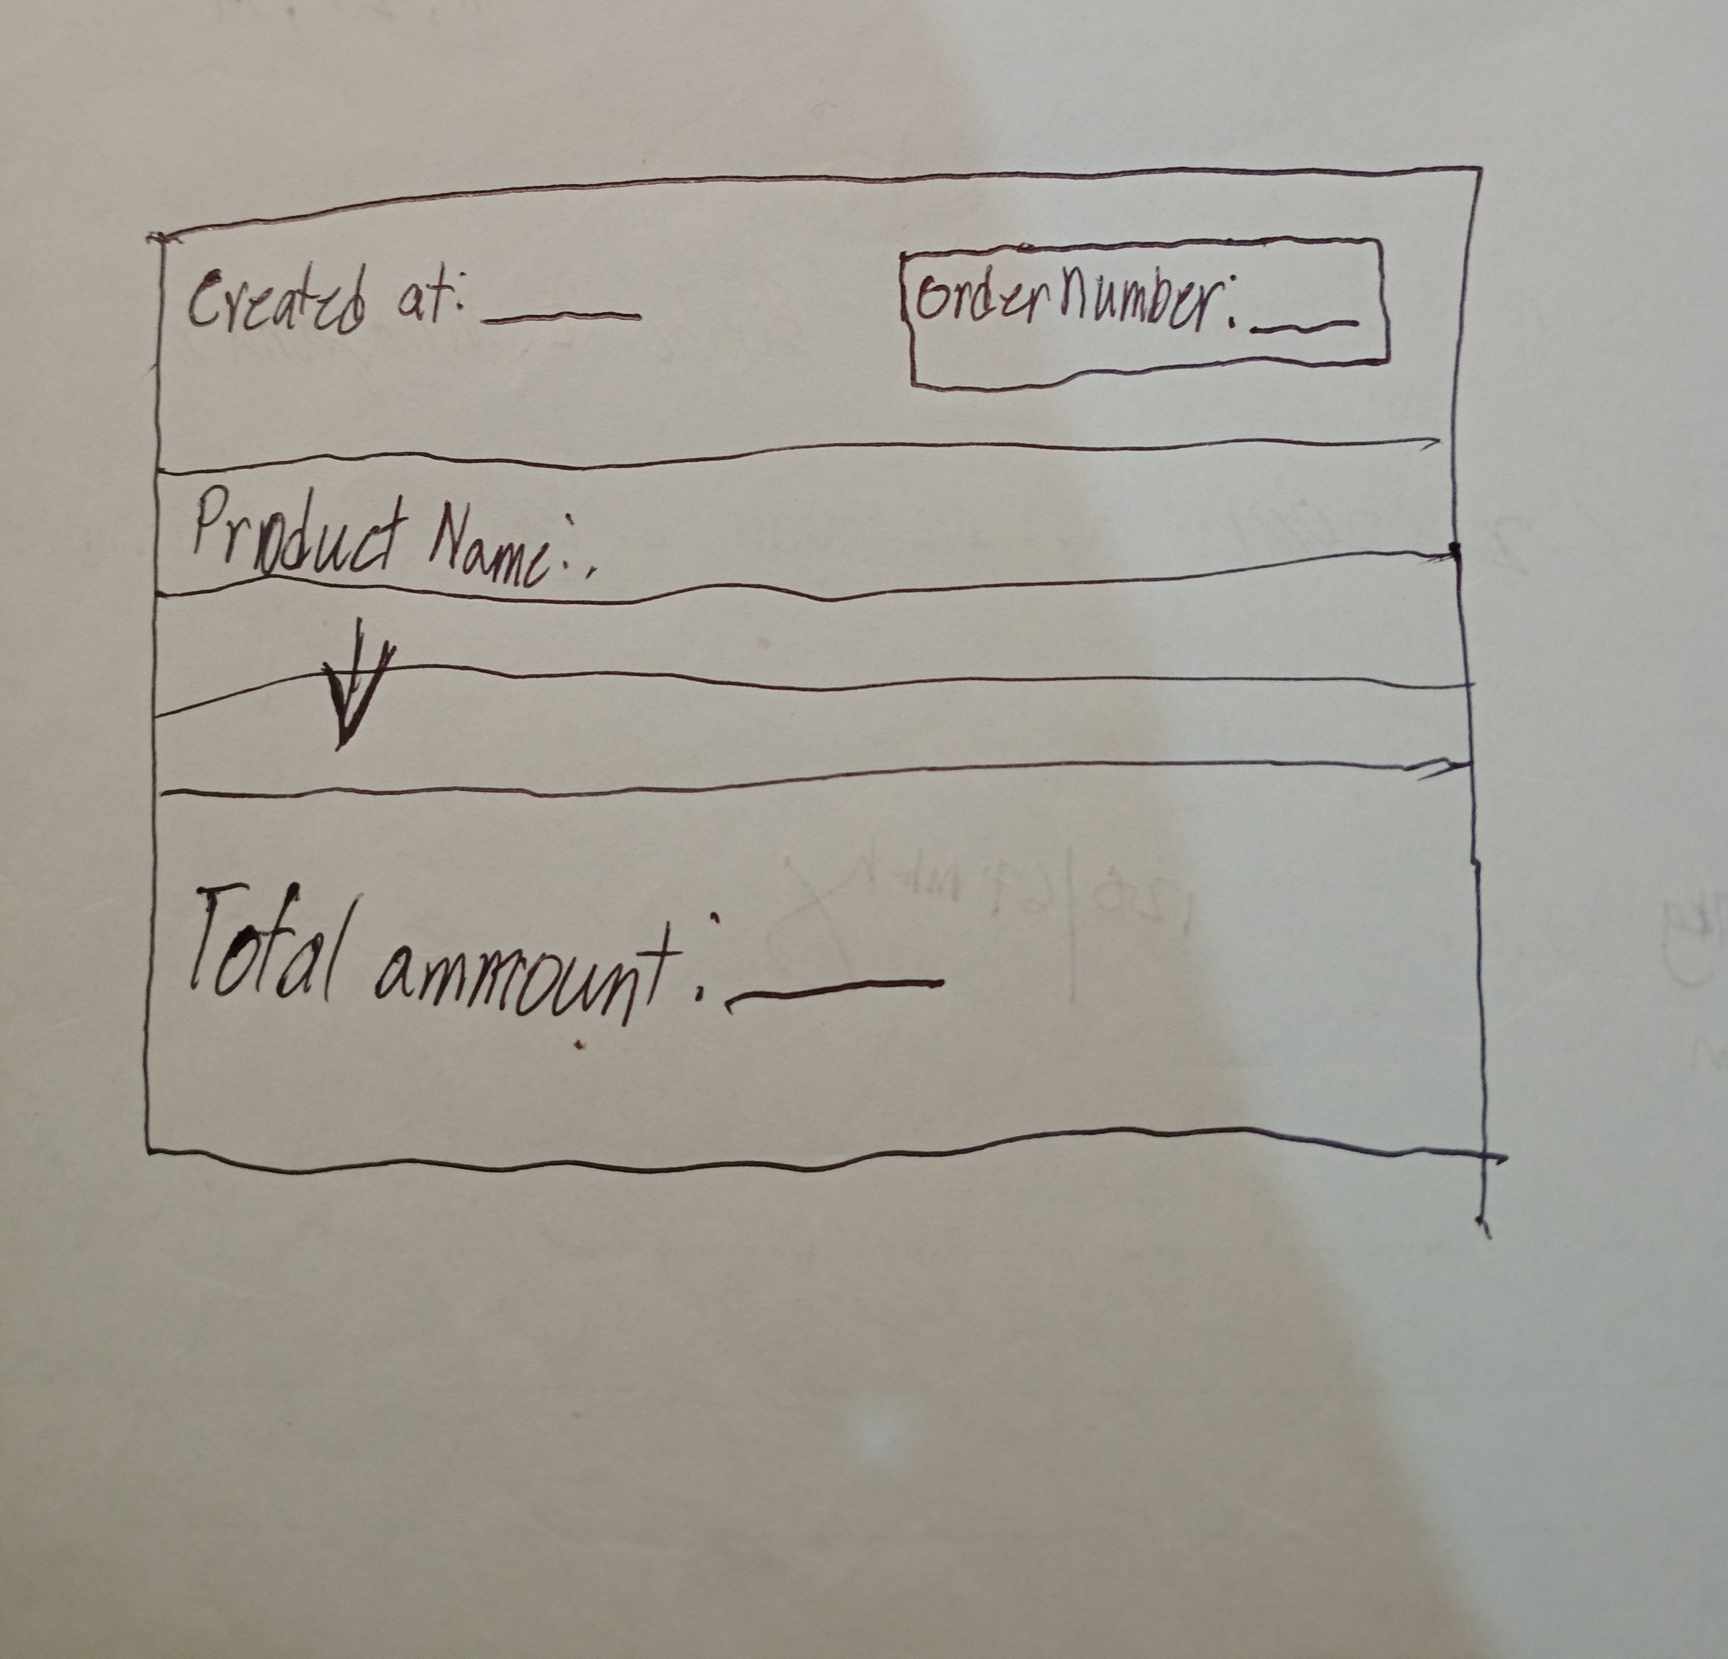 Created at: ____
Order Number: ___
Product Name:
Total ammount: ____